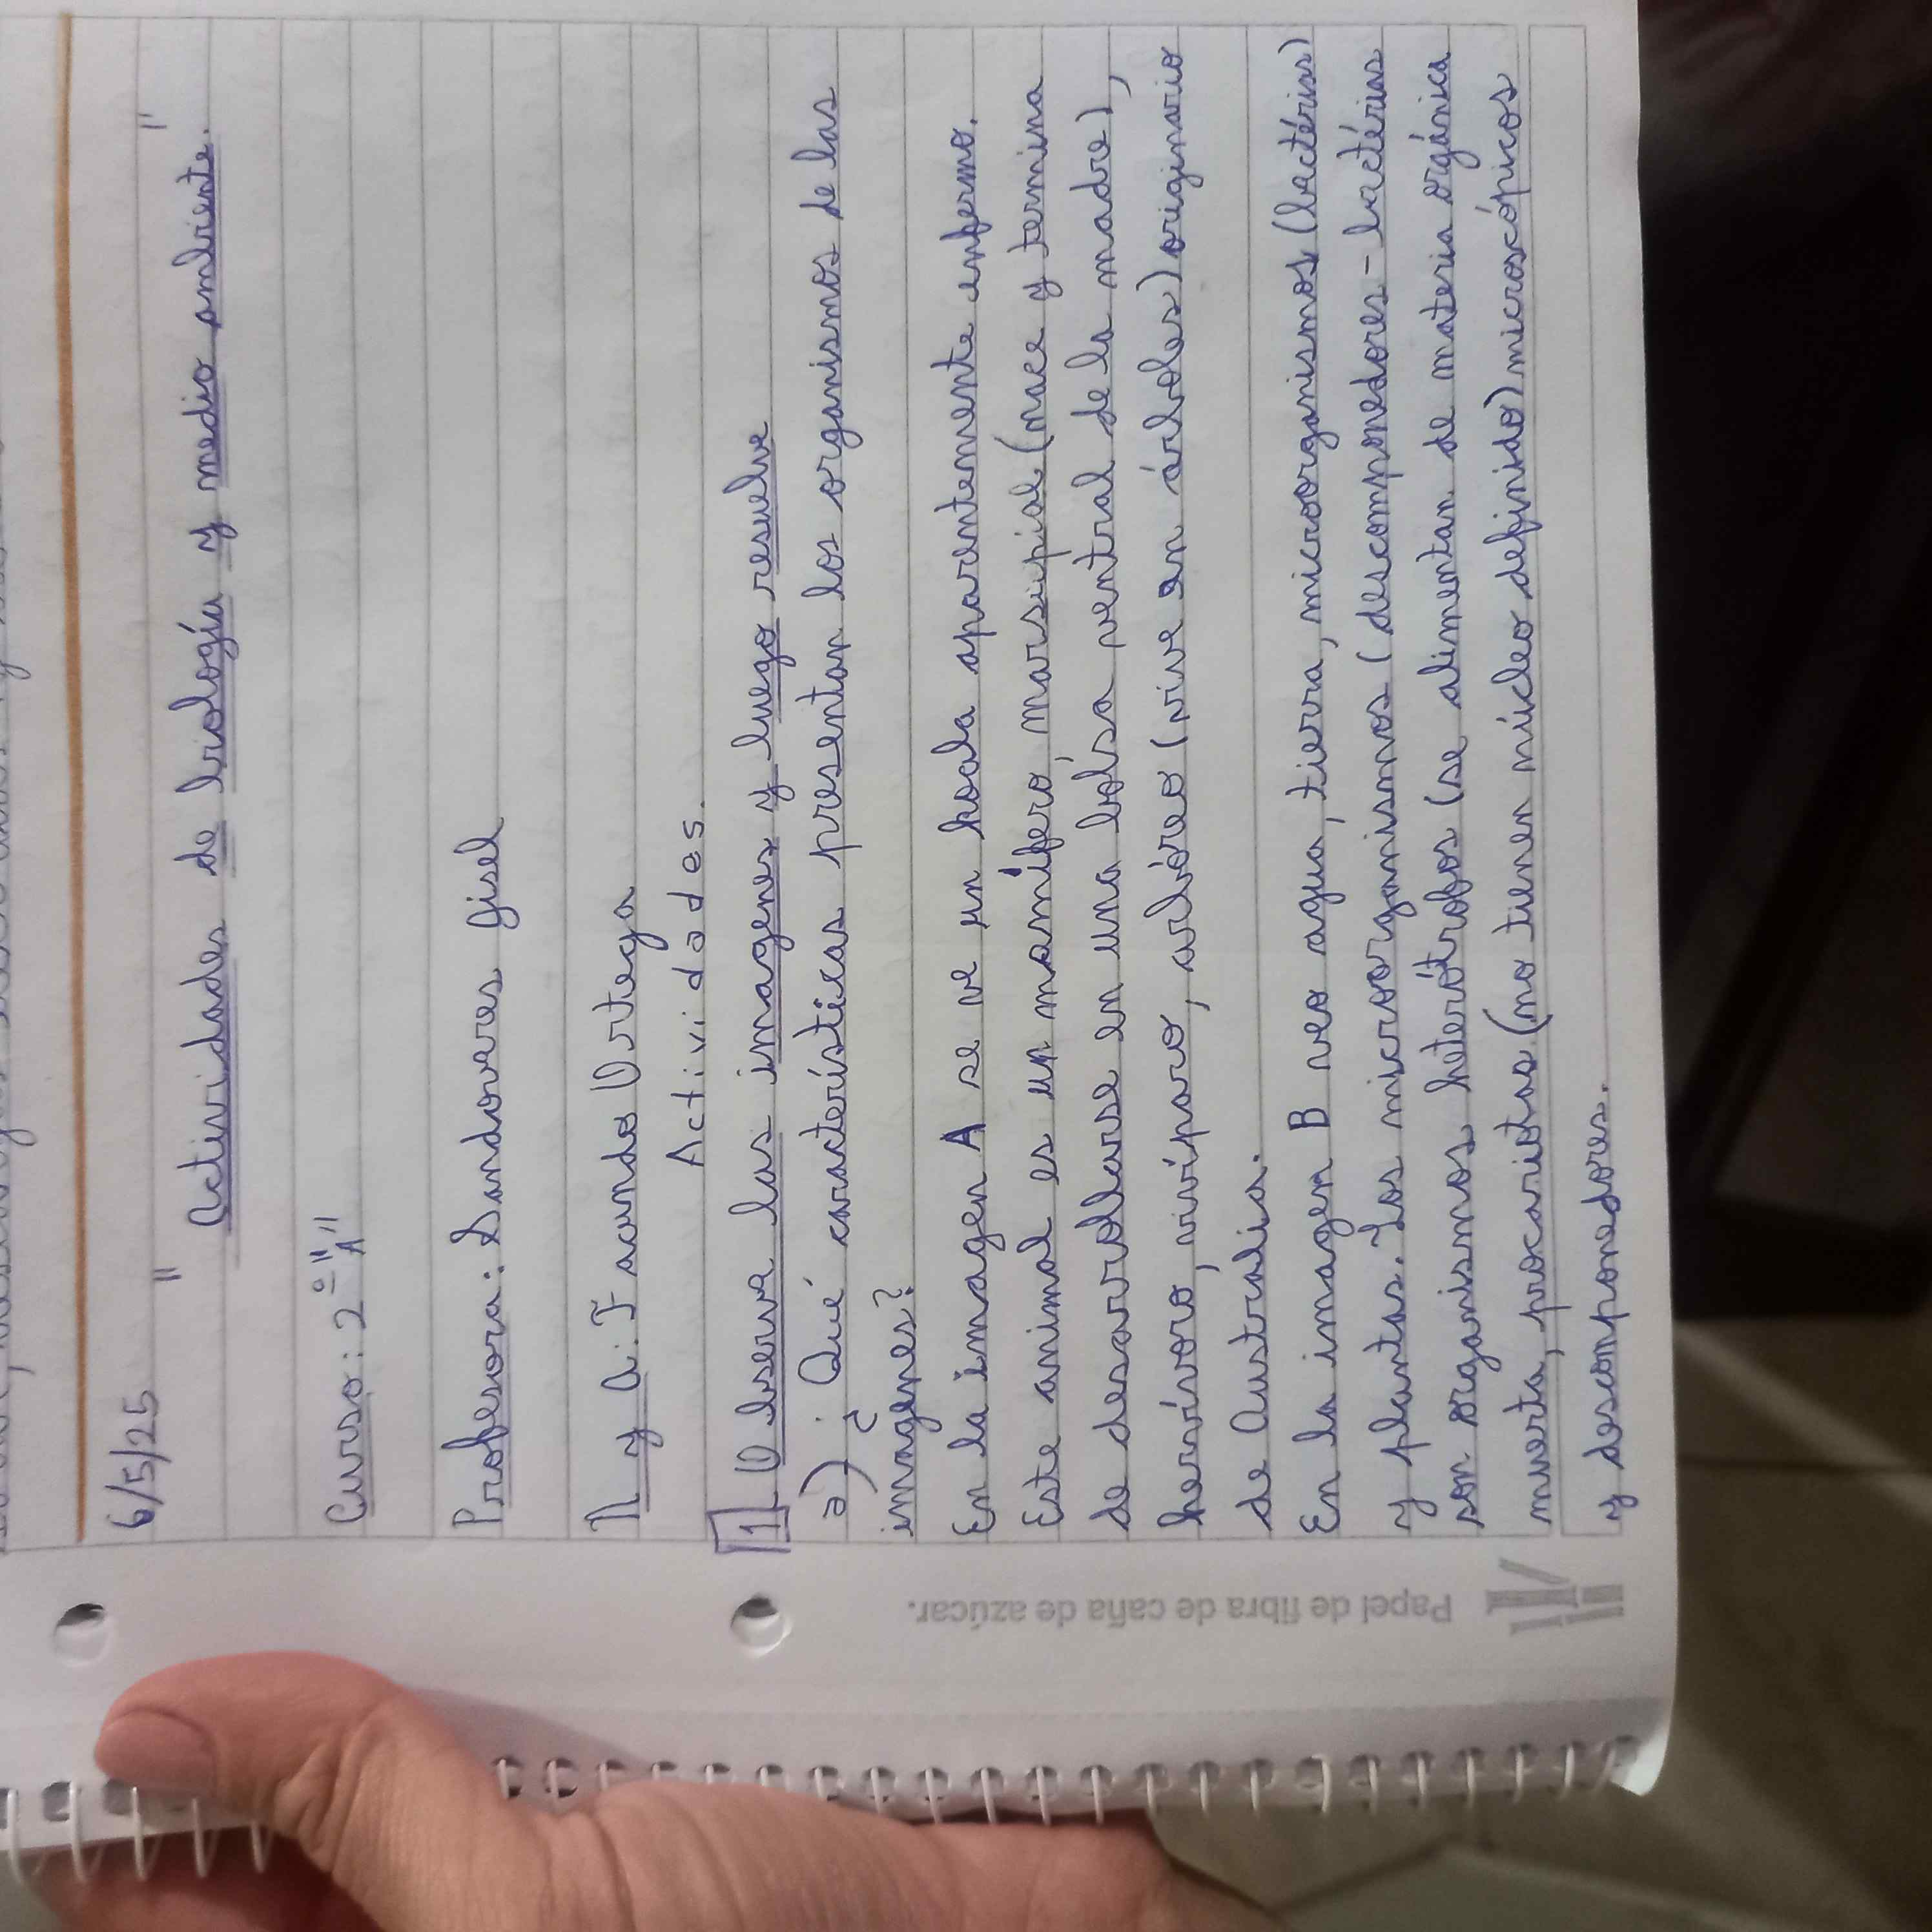 6/5/25
"Actividades de biología y medio ambiente."
Curso: 2° "A"
Profesora: Sandoveres Gisel
N y A: Facundo Ortega
Actividades.
1 Observa las imagenes y luego resuelve
a) ¿Qué características presentan los organismos de las
imagenes?
En la imagen A se ve un koala aparentemente enfermo.
Este animal es un mamífero, marsupial (nace y termina
de desarrollarse en una bolsa ventral de la madre),
hervívoro, vivíparo, arbóreo (vive en árboles) originario
de Australia.
En la imagen B veo agua, tierra, microorganismos (bactérias)
y plantas. Los microorganismos (descomponedores - bactérias
son organismos heterótrofos (se alimentan de materia orgánica
muerta, procariotas (no tienen núcleo definido) microscópicos
y descomponedores.
Papel de fibra de caña de azúcar.